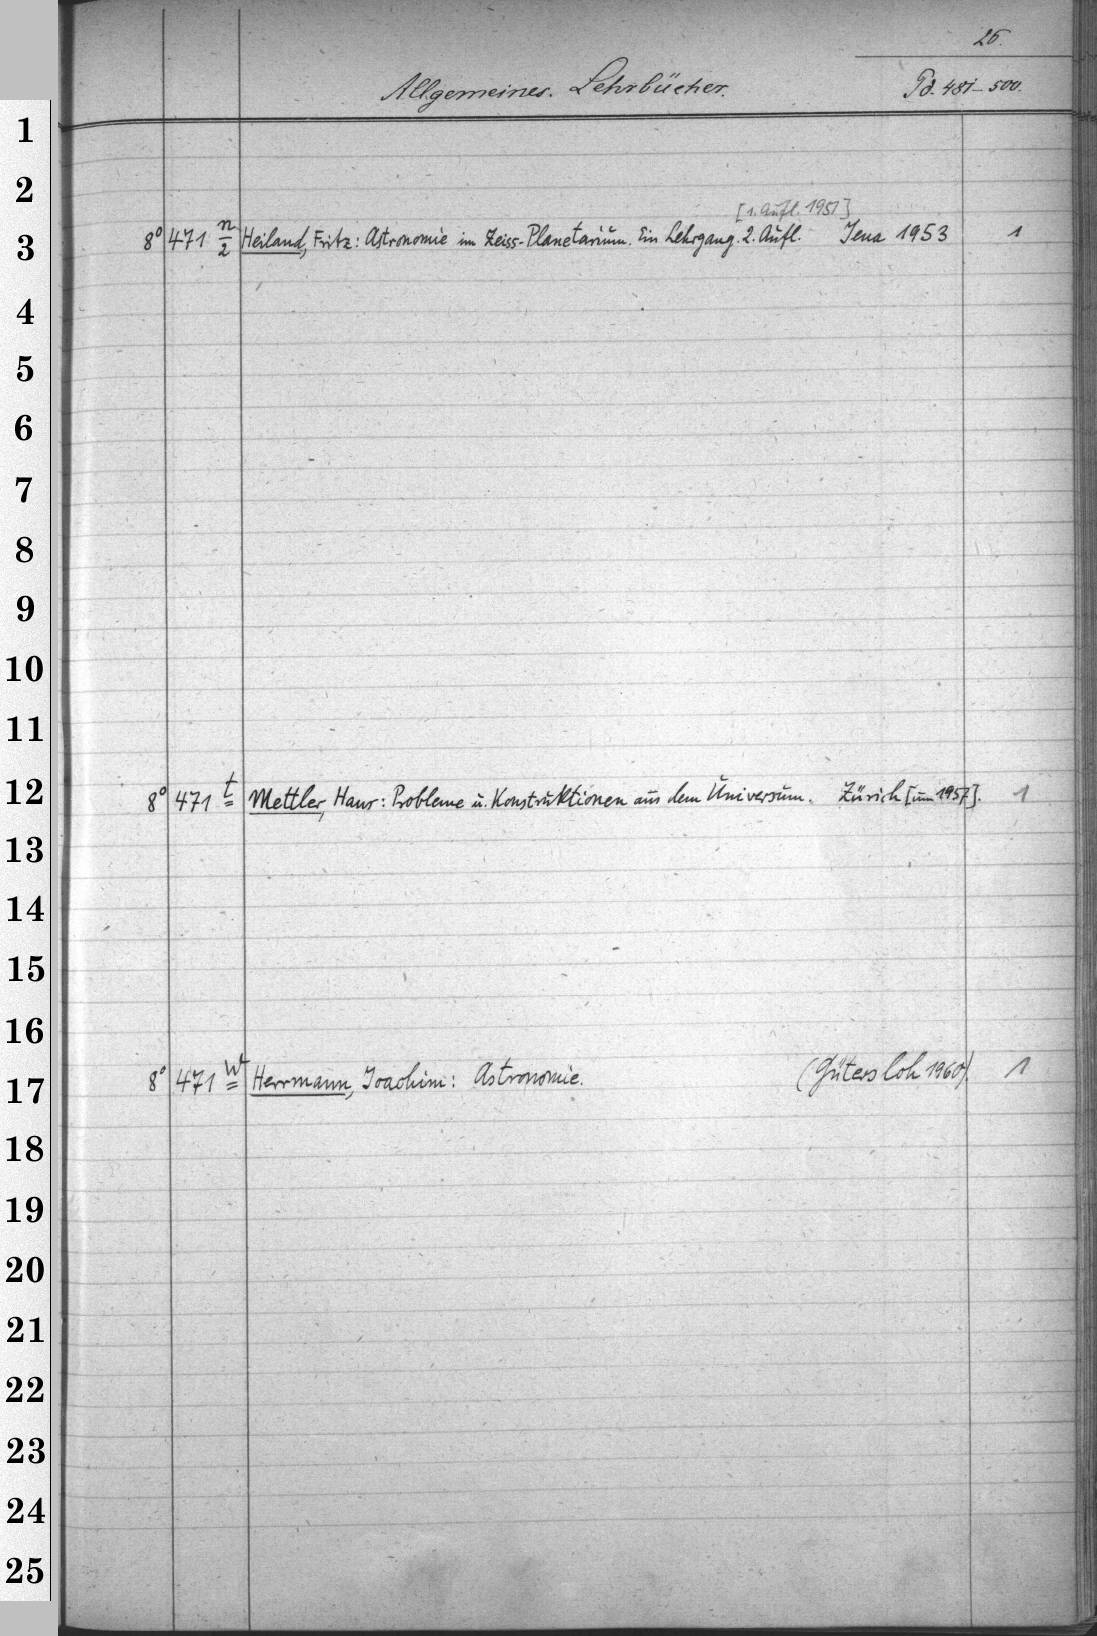 26.
Allgemeines. Lehrbücher.
Pd. 481–500.
1
2
[1. Aufl. 1951]
3 8° 471 n/2 Heiland, Fritz: Astronomie im Zeiss-Planetarium. Ein Lehrgang. 2. Aufl. Jena 1953 1
4
5
6
7
8
9
10
11
12 8° 471 t Mettler, Hans: Probleme u. Konstruktionen aus dem Universum. Zürich [um 1957]. 1
13
14
15
16
17 8° 471 w Herrmann, Joachim: Astronomie. (Gütersloh 1960). 1
18
19
20
21
22
23
24
25